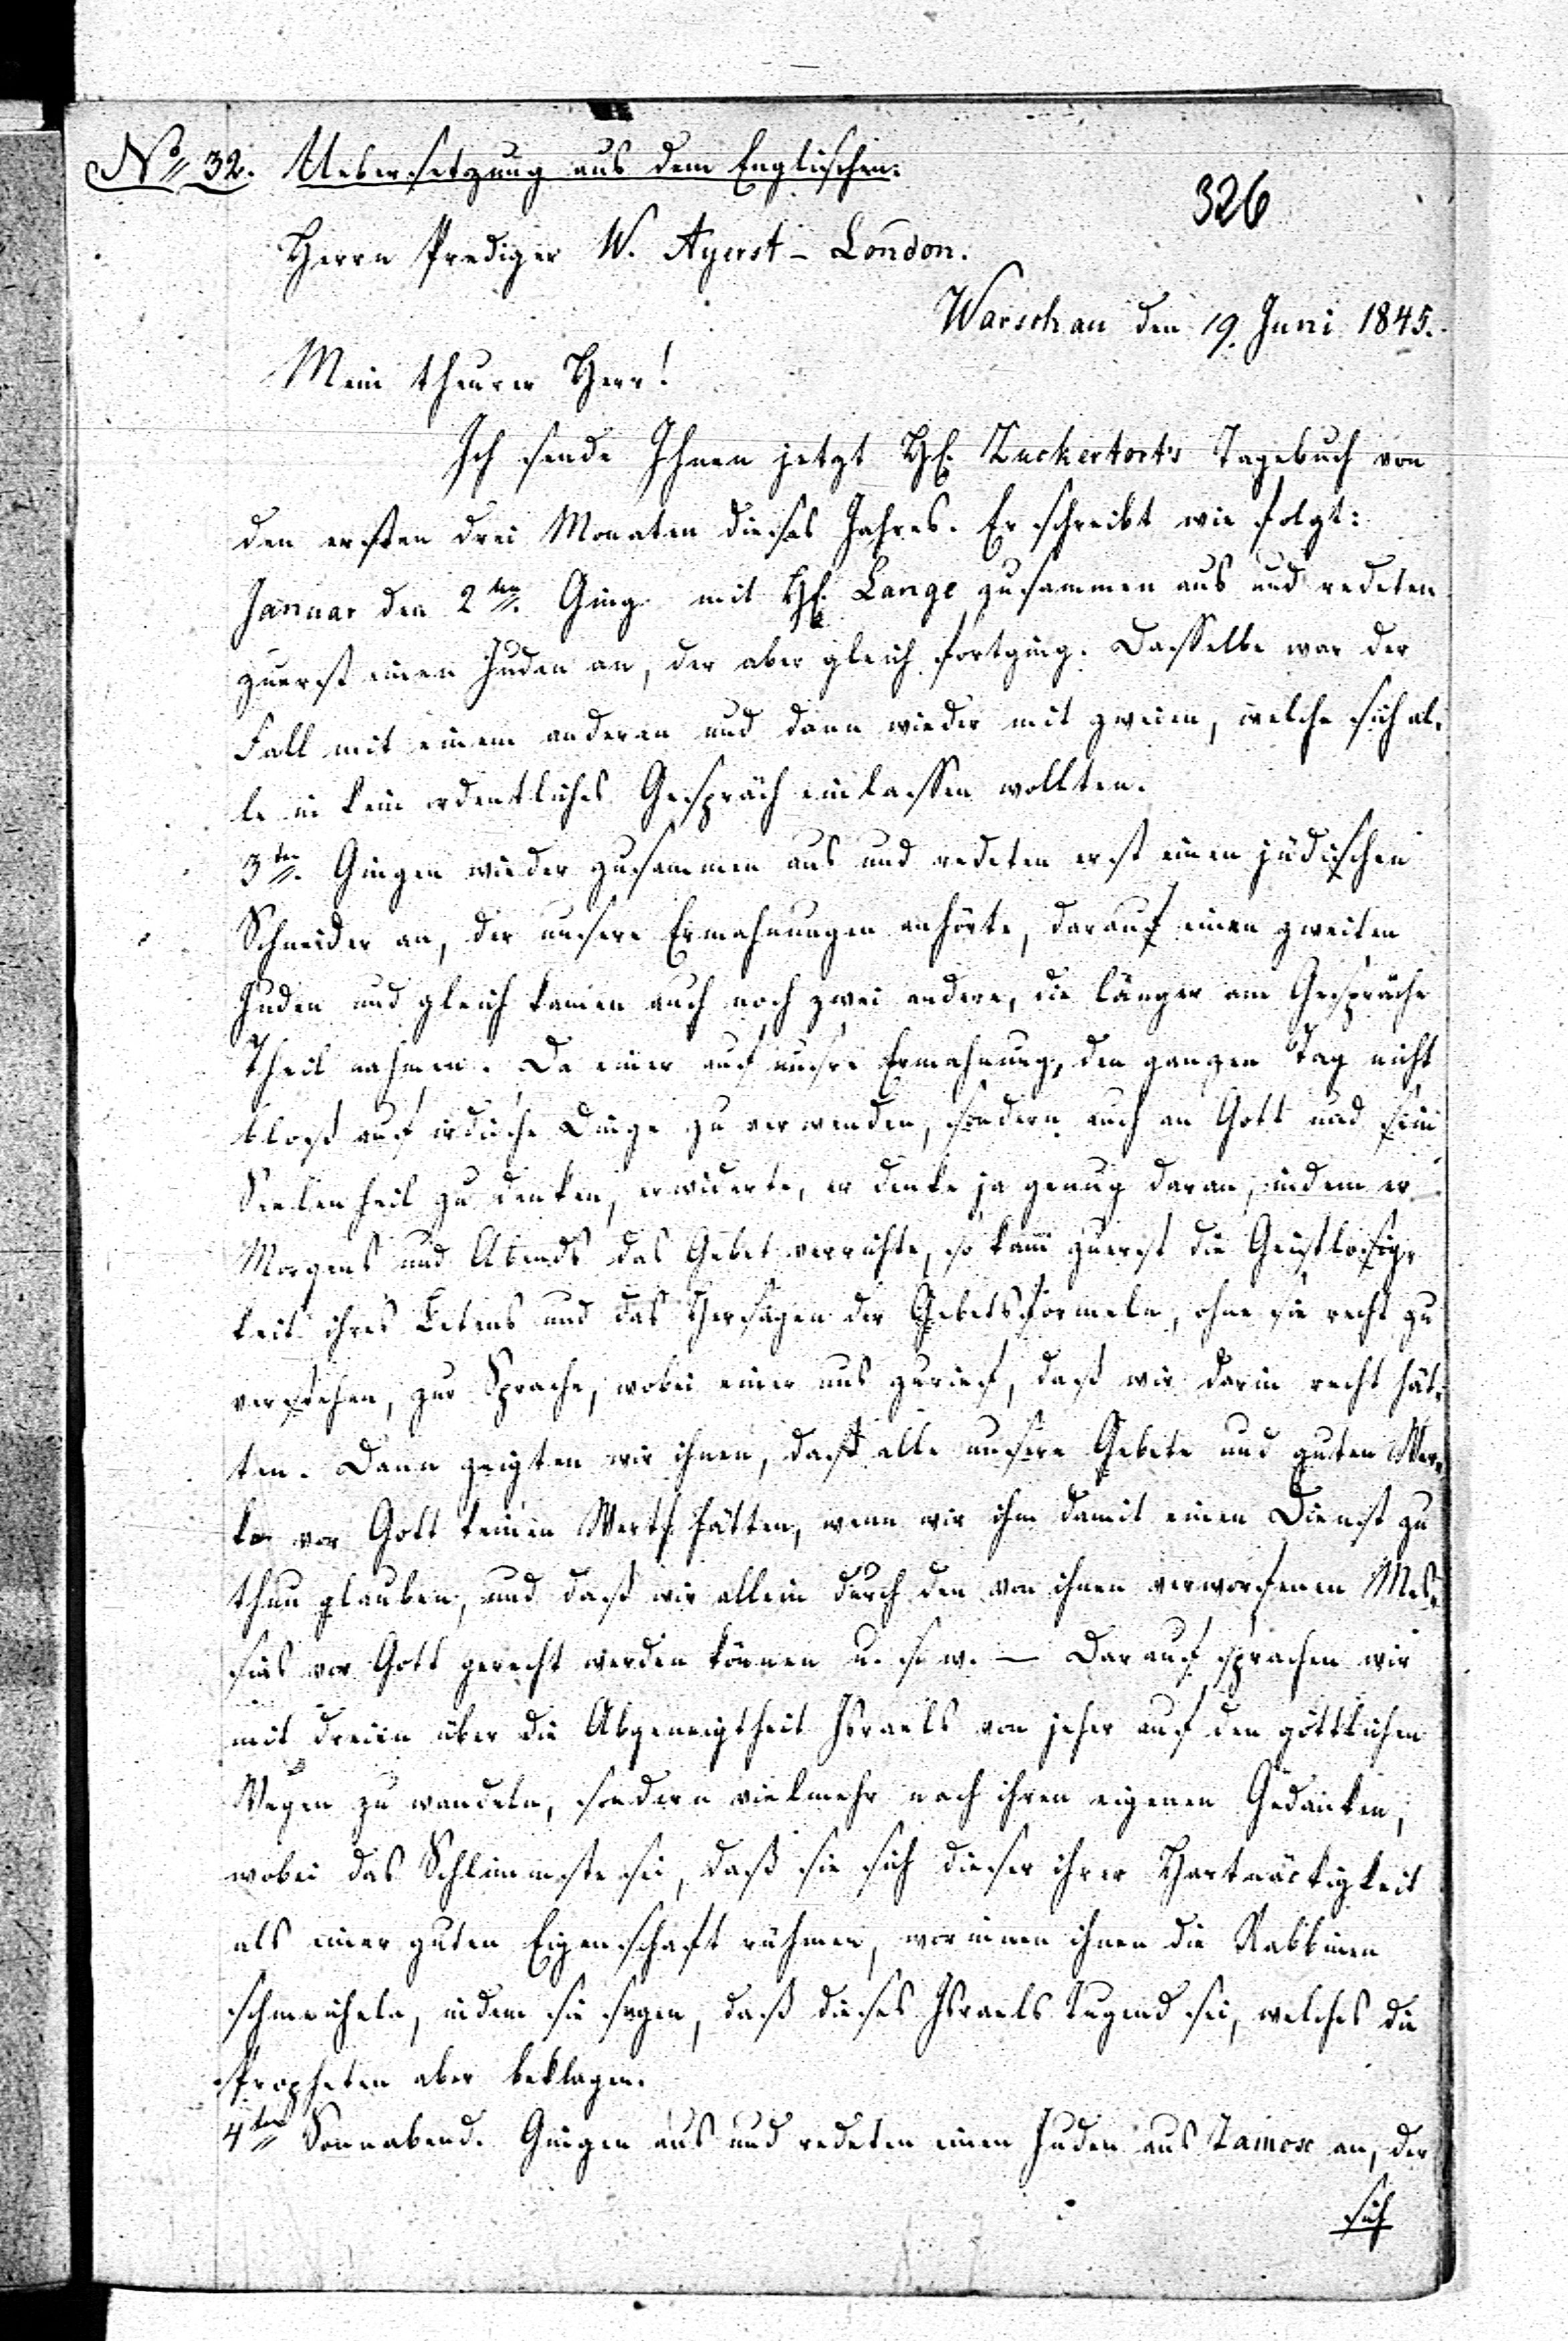 No 32. Uebersetzung aus dem Englischen.
326
Herrn Prediger W. Ayerst - London.
Warschau den 19. Juni 1845.
Mein theurer Herr!
Ich sende Ihnen jetzt H. Zuckertort's Tagebuch von
den ersten drei Monaten dieses Jahres. Er schreibt wie folgt:
Januar den 2ten. Ging mit H. Lange zusammen aus und redeten
zuerst einen Juden an, der aber gleich fortging. Dasselbe war der
Fall mit einem anderen und dann wieder mit zweien, welche sich al-
le in kein ordentliches Gespräch einlassen wollten.
3ten. Gingen wieder zusammen aus und redeten erst einen jüdischen
Schneider an, der unsere Ermahnungen anhörte, darauf einen zweiten
Juden und gleich kamen auch noch zwei andere, die länger am Gespräche
Theil nahmen. Da einer auf unsre Ermahnung, den ganzen Tag nicht
bloß auf irdische Dinge zu verwenden, sondern auch an Gott und sein
Seelenheil zu denken, erwiderte, er denke ja genug daran, indem er
Morgens und Abends das Gebet verrichte, so kam zuerst die Geistlosig-
keit ihres Betens und das Hersagen der Gebetsformeln, ohne sie recht zu
verstehen, zur Sprache, wobei einer uns zurief, daß wir darin recht hät-
ten. Dann zeigten wir ihnen, daß alle unsere Gebete und guten Wer-
ke vor Gott keinen Werth hätten, wenn wir ihm damit einen Dienst zu
thun glauben, und daß wir allein durch den von ihnen verworfenen Mes-
sias vor Gott gerecht werden können u. s. w. — Darauf sprachen wir
mit dreien über die Abgeneigtheit Israels von jeher auf den göttlichen
Wegen zu wandeln, sondern vielmehr nach ihren eigenen Gedanken,
wobei das Schlimmste sei, daß sie sich dieser ihrer Hartnäckigkeit
als einer guten Eigenschaft rühmen, worinnen ihnen die Rabbinen
schmeicheln, indem sie sagen, daß dieses Israels Tugend sei, welches die
Propheten aber beklagen.
4ten Sonnabend. Gingen aus und redeten einen Juden aus Zamosc an, der
sich